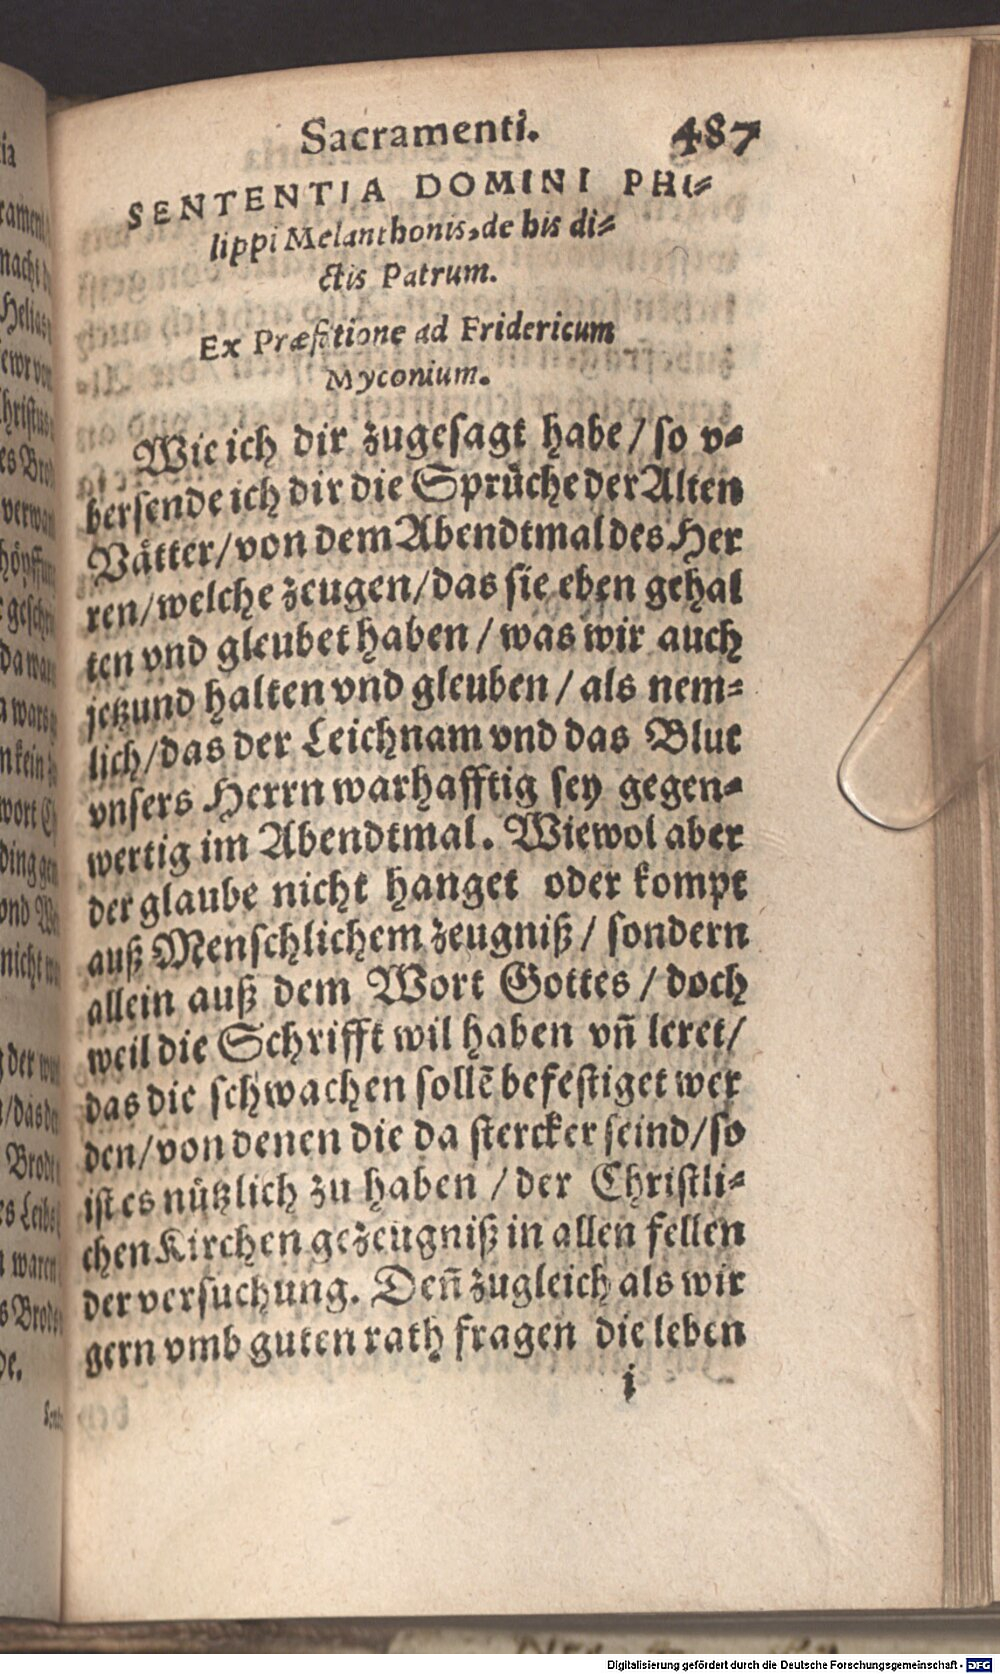 Sacramenti. 487
SENTENTIA DOMINI PHI⸗
lippi Melanthonis, de his di⸗
ctis Patrum.
Ex Præfatione ad Fridericum
Myconium.
Wie ich dir zugesagt habe / so v⸗
bersende ich dir die Sprüche der Alten
Vätter / von dem Abendtmal des Her
ren / welche zeugen / das sie eben gehal
ten vnd gleubet haben / was wir auch
jetzund halten vnd gleuben / als nem⸗
lich / das der Leichnam vnd das Blut
vnsers Herrn warhafftig sey gegen⸗
wertig im Abendtmal. Wiewol aber
der glaube nicht hanget oder kompt
auß Menschlichem zeugniß / sondern
allein auß dem Wort Gottes / doch
weil die Schrifft wil haben vñ leret /
das die schwachen sollẽ befestiget wer
den / von denen die da stercker seind / so
ist es nützlich zu haben / der Christli⸗
chen Kirchen gezeugniß in allen fellen
der versuchung. Deñ zugleich als wir
gern vmb guten rath fragen die leben
i
Digitalisierung gefördert durch die Deutsche Forschungsgemeinschaft - DFG